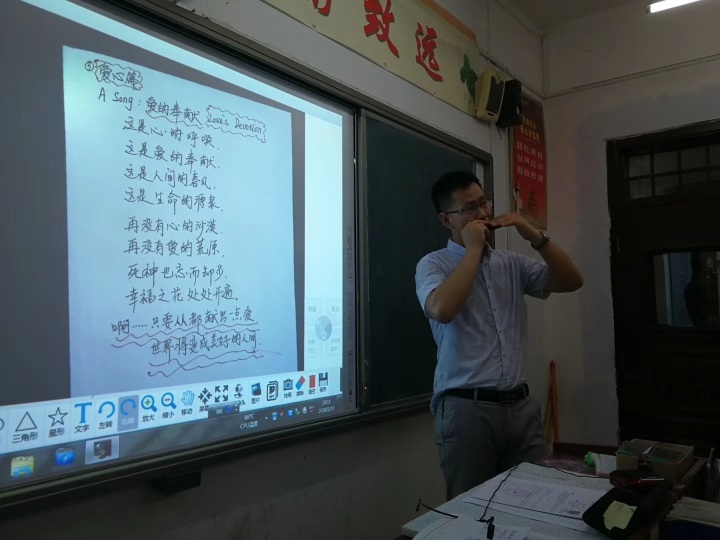 致远
③爱心篇
A Song: 爱的奉献 Love's Devotion
这是心的呼唤
这是爱的奉献
这是人间的春风
这是生命的源泉
再没有心的沙漠
再没有爱的荒原
死神也忘而却步
幸福之花处处开遍
啊……只要人都献出点爱
世界将变成美好的人间
三角形 星形 文字 左转 右转 放大 缩小 移动 图片
CPU温度